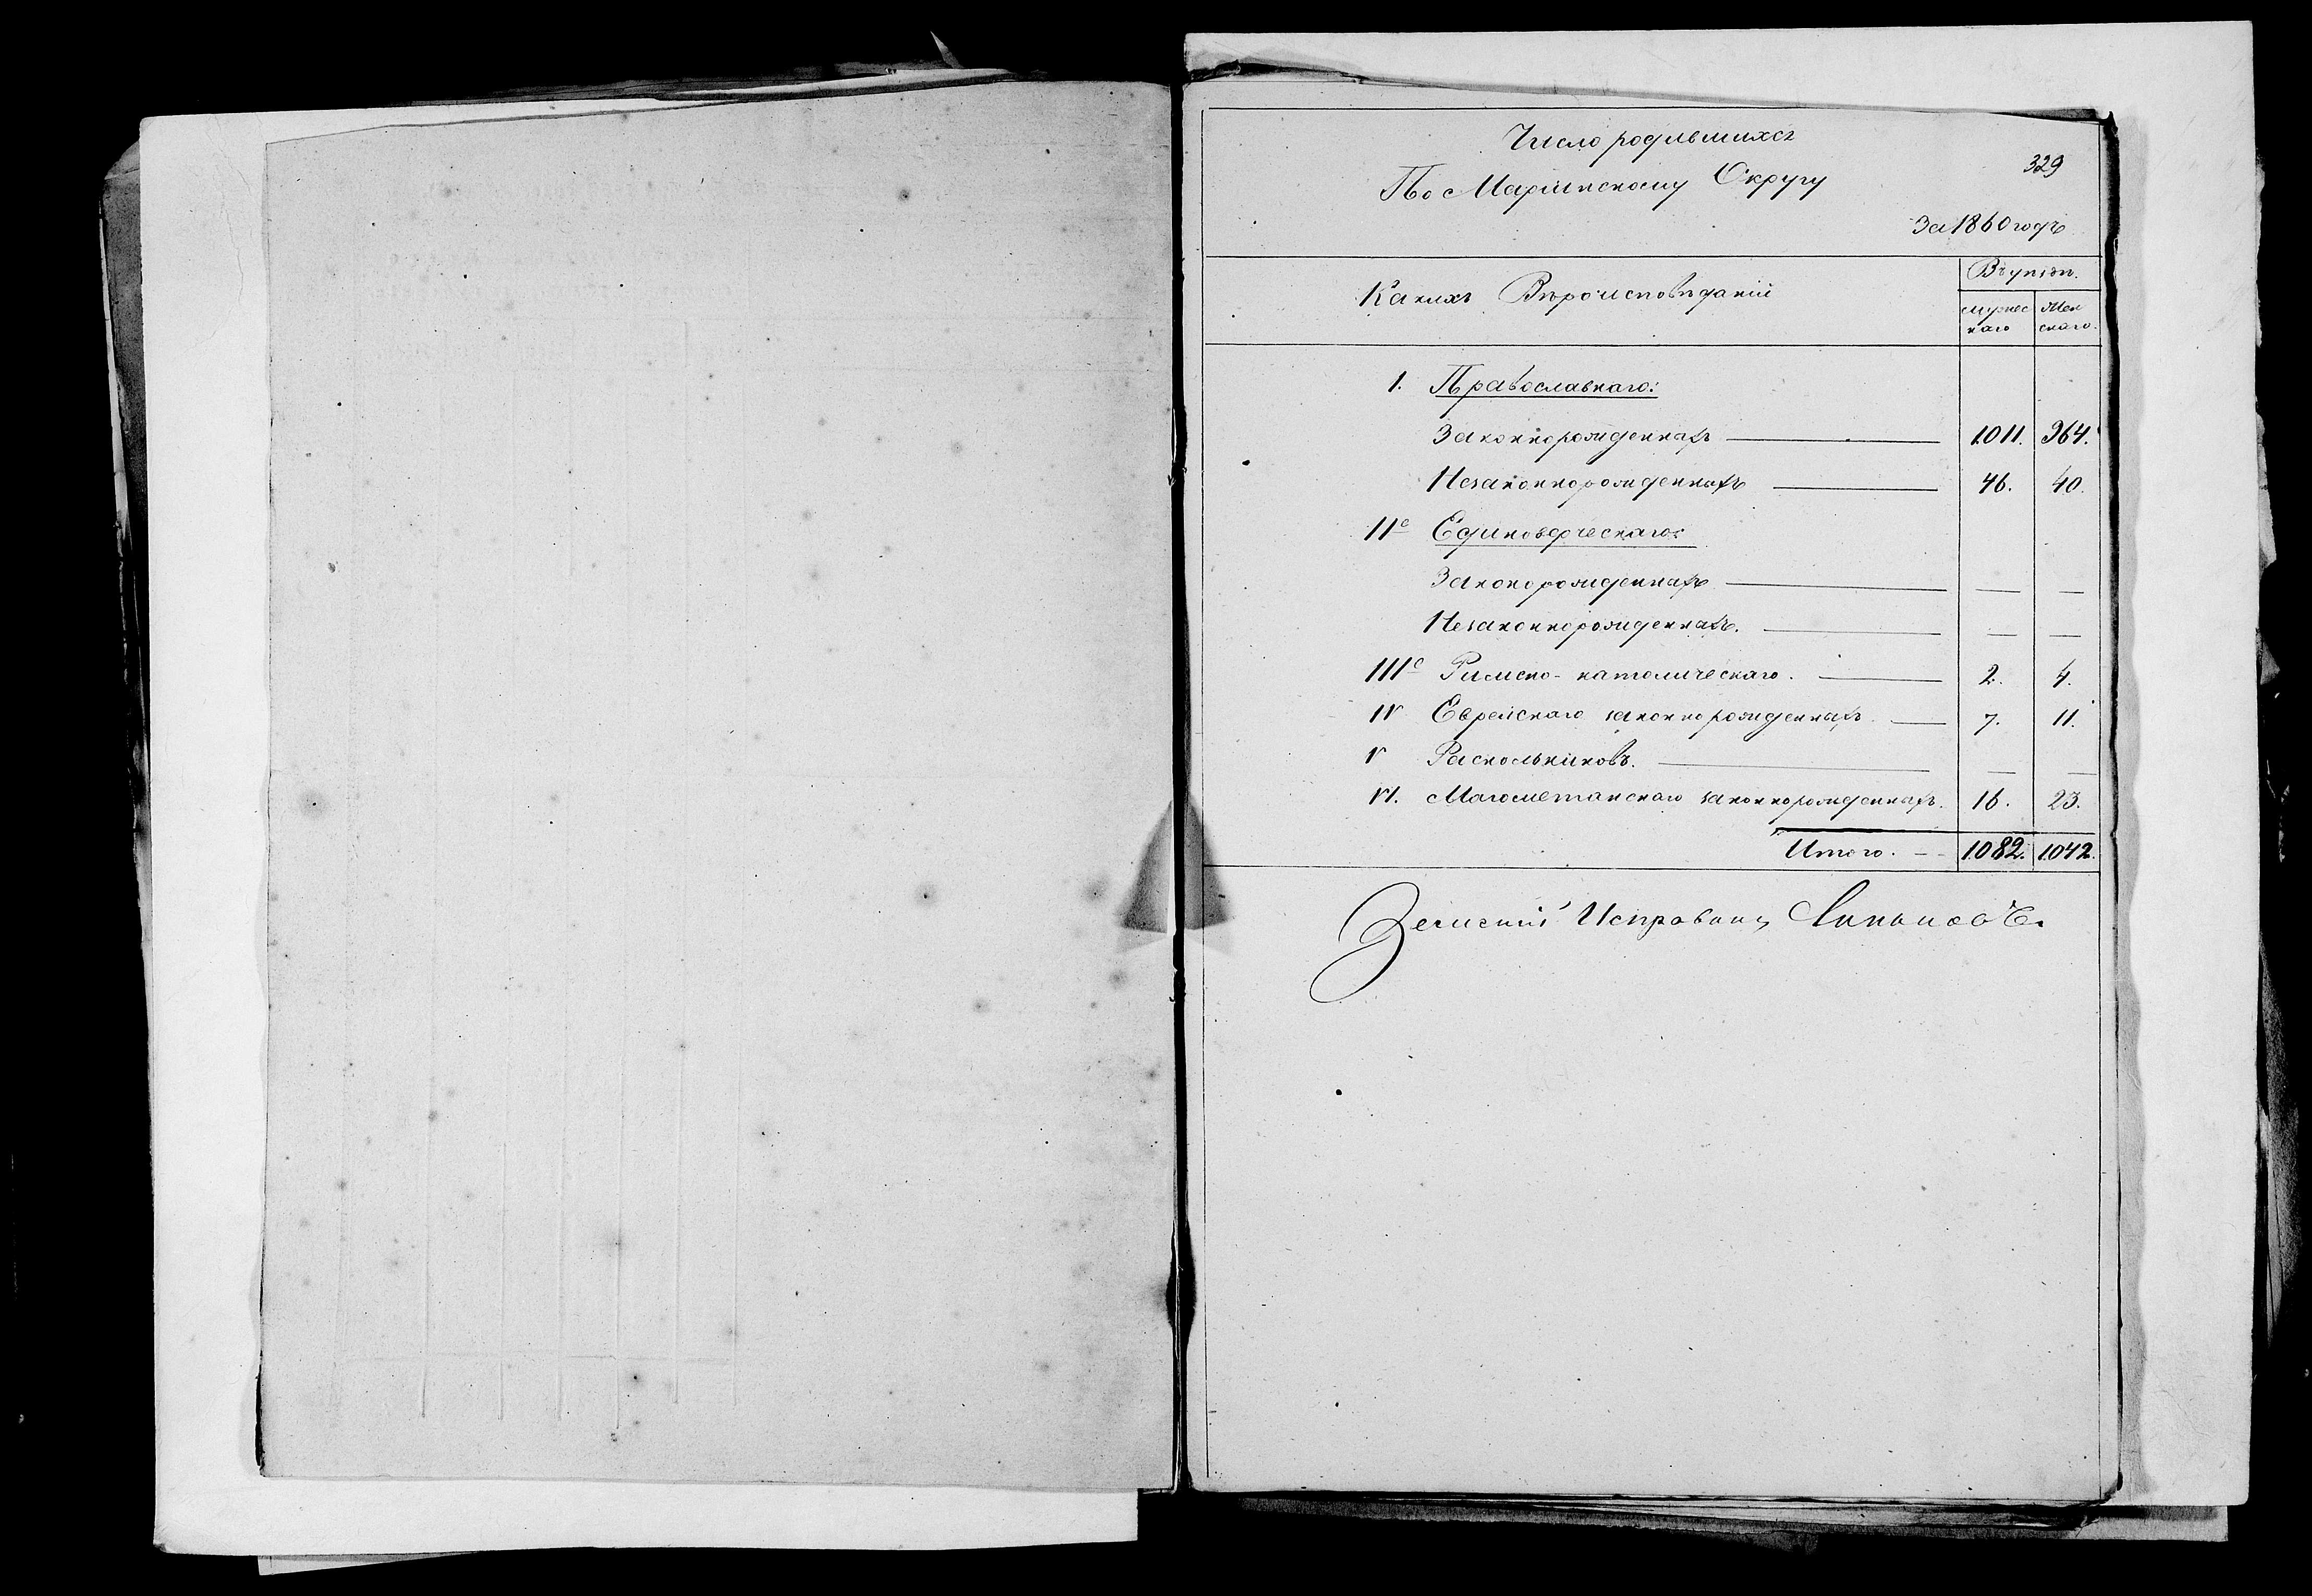 Число родившихся
329
По Маріинскому Округу
За 1860 годъ
Какихъ Вѣроисповѣданій
мужес
каго
Жен
скаго.
1. Православнаго:
Законнорожденныхъ 1011. 964.
Незаконнорожденныхъ 46. 40.
II е Единоверческаго:
Законорожденныхъ — —
Незаконнорожденныхъ. — —
III е Римско-католическаго. 2. 4.
IV Еврейскаго законнорожденныхъ 7. 11.
V Раскольниковъ. — —
VI. Магометанскаго законнорожденныхъ. 16. 23.
Итого. — 1082. 1042.
Земскій Исправникъ